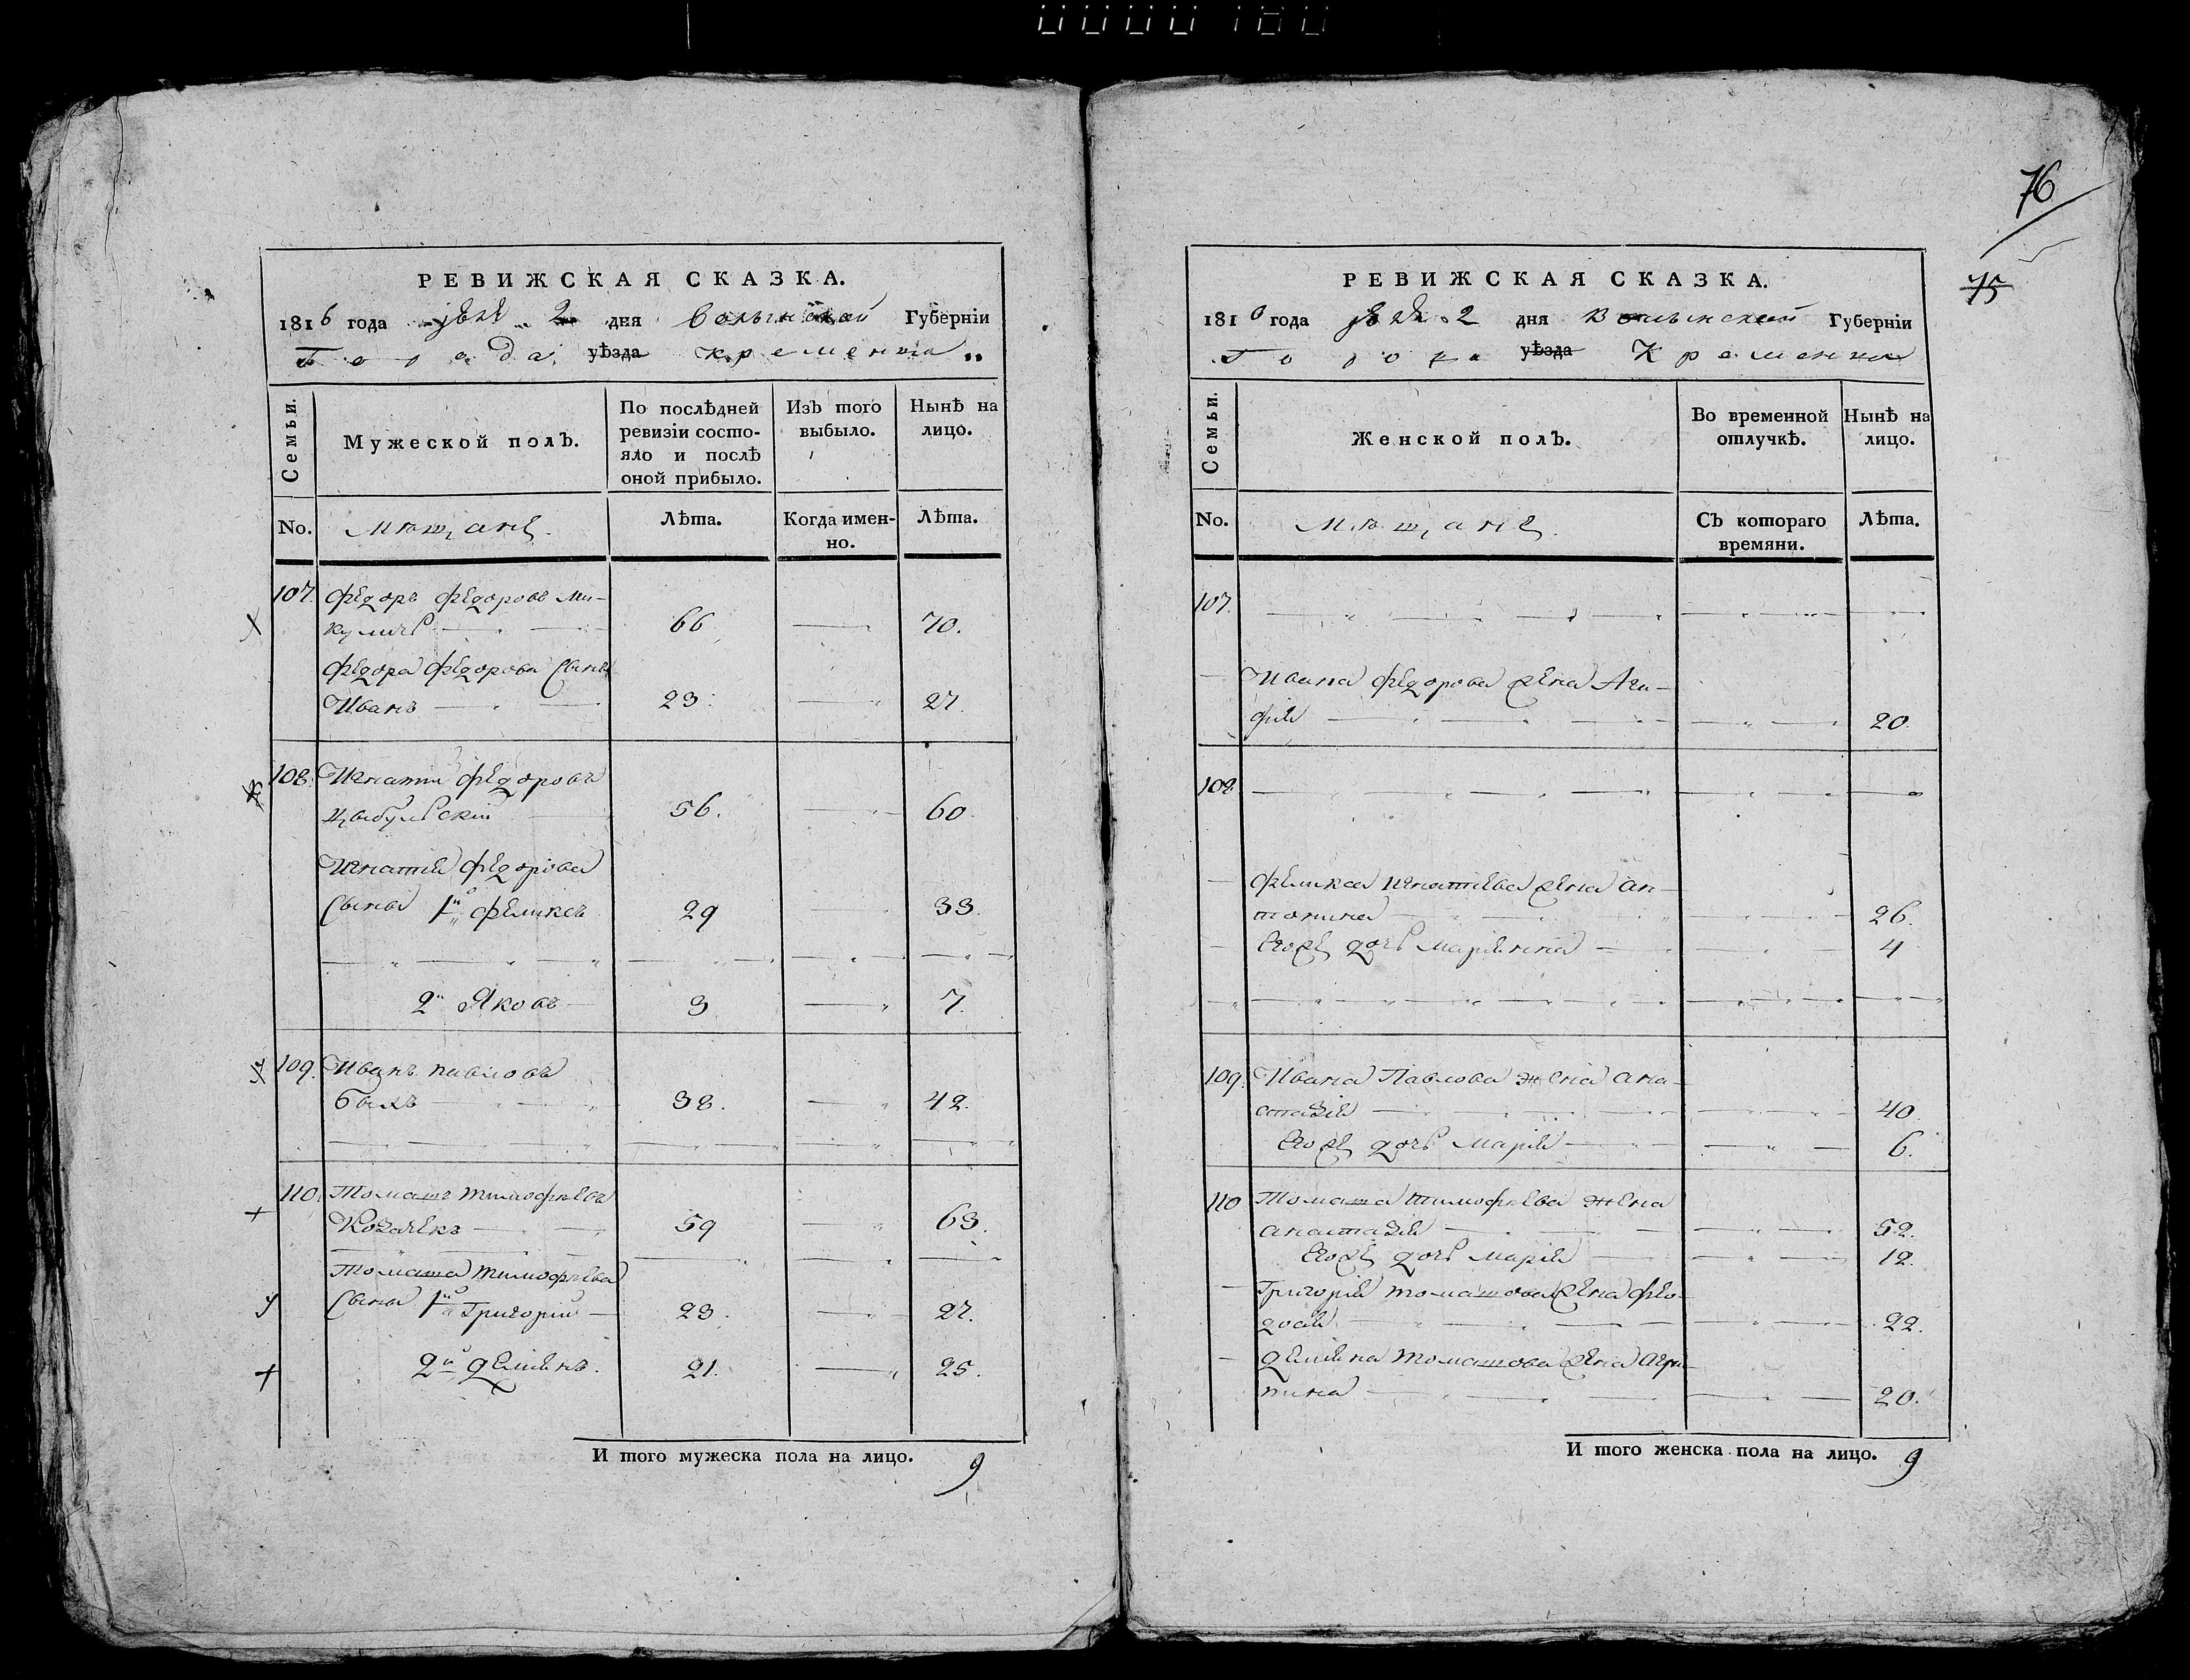 76
75
РЕВИЖСКАЯ СКАЗКА.
1816 года 2 дня Волынской Губернiи
Города уѣзда Кременца
Семьи.
Мужеской полъ.
По послѣдней ревизiи состояло и послѣ оной прибыло.
Изъ того выбыло.
Нынѣ на лицо.
No. Мѣщане.
Лѣта.
Когда именно.
Лѣта.
107. Федоръ Федоровъ Ми-
куличь 66 70.
Федора Федорова Сынъ
Иванъ 23 27.
108. Игнатiй Федоровъ
Цыбульскiй 56. 60.
Игнатiя Федорова
Сыновя 1й Феликсъ 29 33.
2й Яковъ 3 7.
109. Иванъ Павловъ
Быкъ 38. 42.
110. Томашъ Тимофѣевъ
Козачекъ 59 63.
Томаша Тимофѣева
Сыновя 1й Григорiй 23. 27.
2й Демянъ. 21. 25.
И того мужеска пола на лицо. 9
РЕВИЖСКАЯ СКАЗКА.
1816 года 2 дня Волынской Губернiи
Города уѣзда Кременца
Семьи.
Женской полъ.
Во временной отлучкѣ.
Нынѣ на лицо.
No. Мѣщане.
Съ котораго времяни.
Лѣта.
107.
Ивана Федорова жена Ага-
фiя 20.
108.
Феликса Игнатiева жена Ан-
тонина 26.
Егоже дочь Марiянна 4
109. Ивана Павлова жена Ана-
стазiя 40.
Егоже дочь Марiя 6.
110 Томаша Тимофѣева жена
Анастазiя 52.
Егоже дочь Марiя 12.
Григорiя Томашова жена Фео-
досiя 22.
Демяна Томашова жена Агри-
пина 20.
И того женска пола на лицо. 9